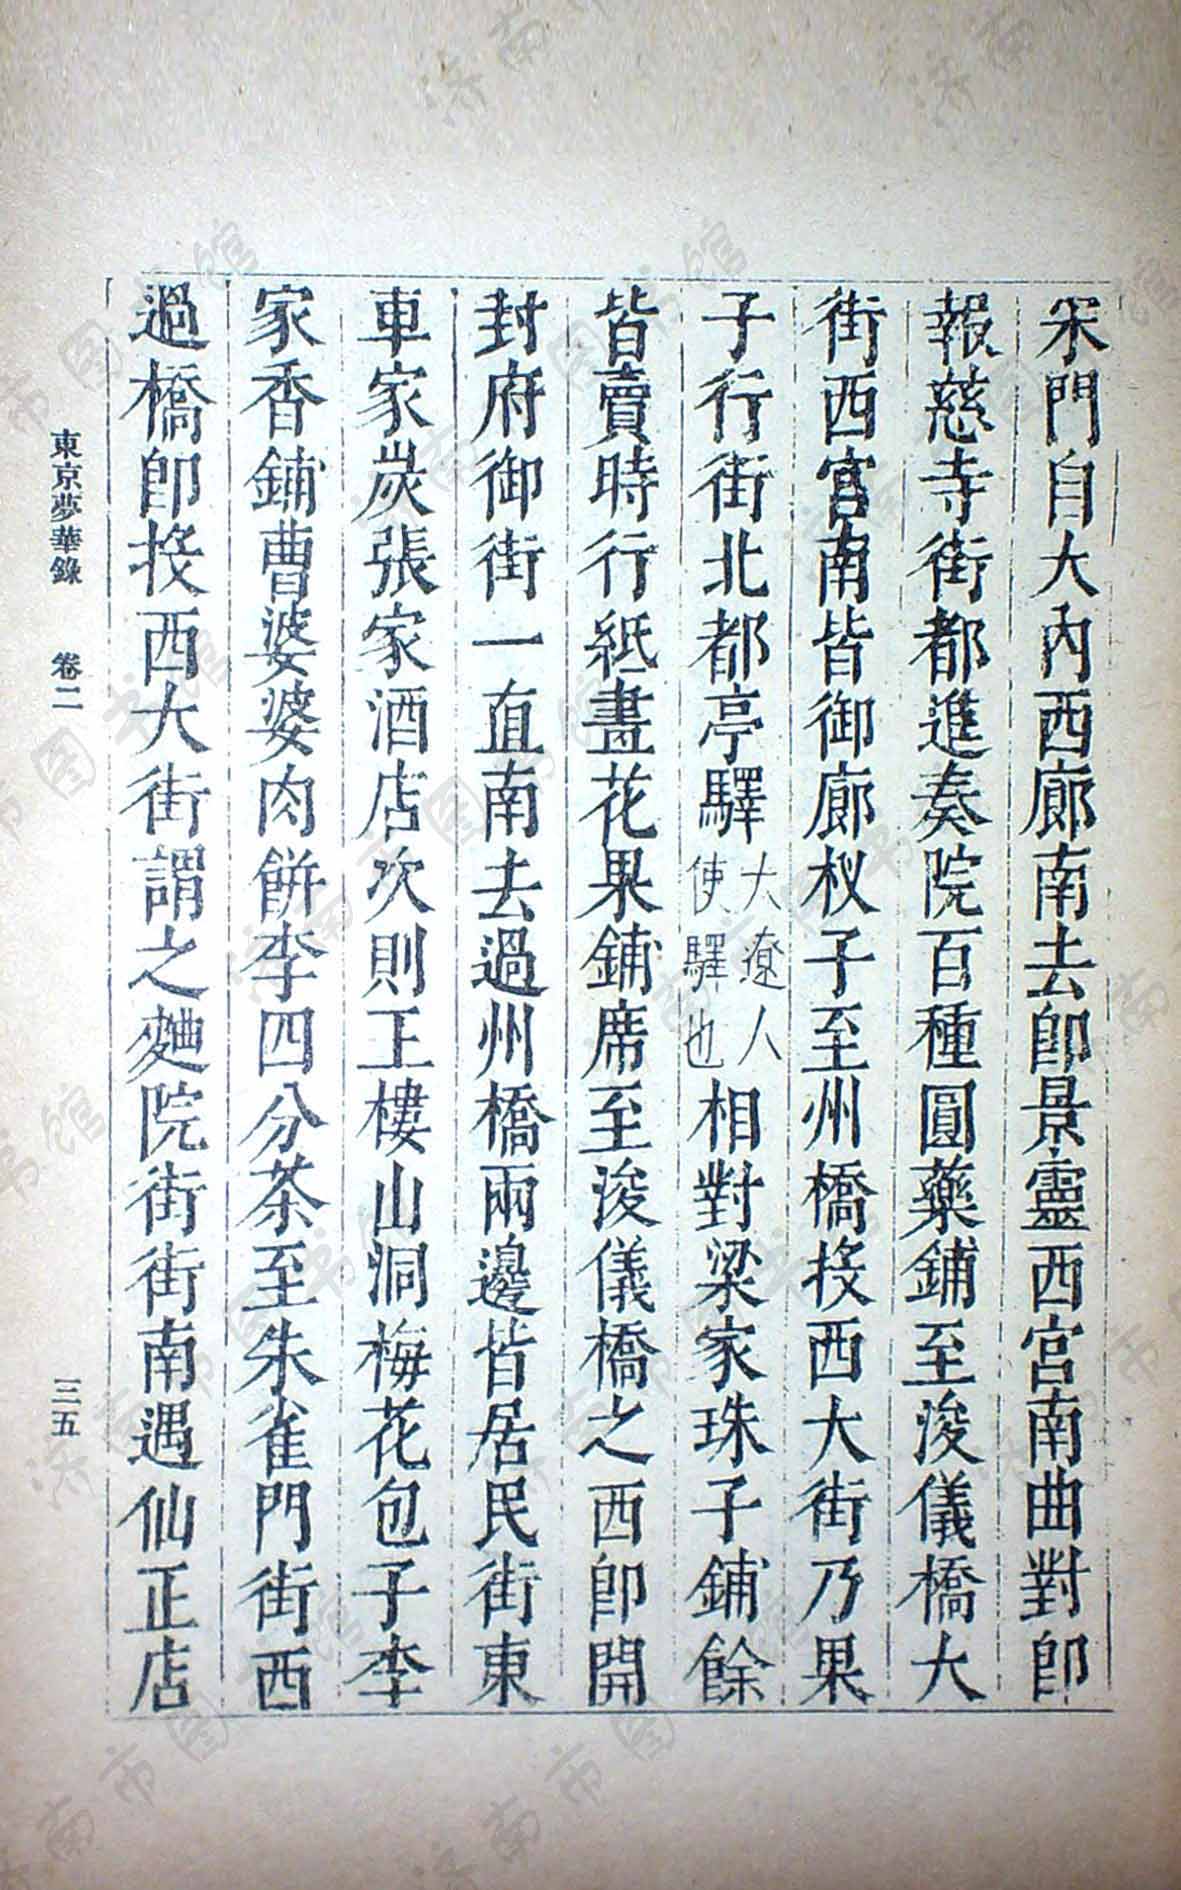 宋門自大內西廊南去卽景靈西宮南曲對卽
報慈寺街都進奏院百種圓藥鋪至浚儀橋大
街西宮南皆御廊杈子至州橋投西大街乃果
子行街北都亭驛大遼人使驛也相對梁家珠子鋪餘
皆賣時行紙畫花果鋪席至浚儀橋之西卽開
封府御街一直南去過州橋兩邊皆居民街東
車家炭張家酒店次則王樓山洞梅花包子李
家香鋪曹婆婆肉餅李四分茶至朱雀門街西
過橋卽投西大街謂之麯院街街南遇仙正店
東京夢華錄 卷二 三五
济南市图书馆